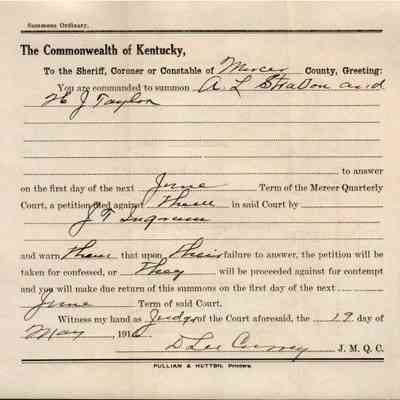 Summons Ordinary.
The Commonwealth of Kentucky,
To the Sheriff, Coroner or Constable of Mercer County, Greeting:
You are commanded to summon A. L. and
J Taylor
to answer
on the first day of the next June Term of the Mercer Quarterly
Court, a petition filed against them in said Court by
J T Ingram
and warn them that upon their failure to answer, the petition will be
taken for confessed, or they will be proceeded against for contempt
and you will make due return of this summons on the first day of the next
June Term of said Court.
Witness my hand as Judge of the Court aforesaid, the 19 day of
May, 191
D Lee Currey J. M. Q. C.
PULLIAN & HUTTON, Printers.